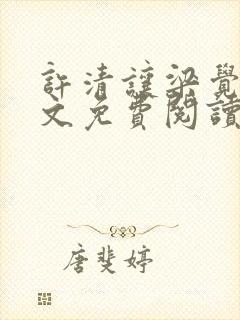 許清讓梁覺
文免費閱讀
唐斐婷